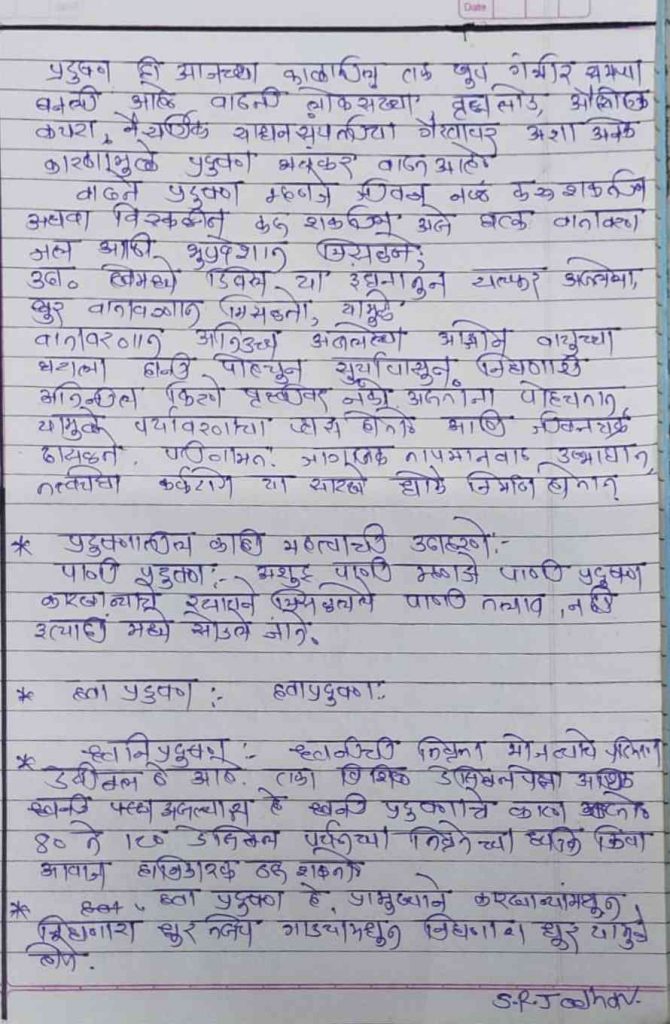 Date
प्रदुषण ही आजच्या काळातील एक खुप गंभीर समस्या
बनली आहे वाढती लोकसंख्या, वृक्षतोड, औद्योगिक
कचरा, नैसर्गिक साधनसंपत्तीचा गैरवापर अशा अनेक
कारणामुळे प्रदुषण भयंकर वाढत आहे
वाढते प्रदुषण म्हणजे जीवन नष्ट करू शकतील
अथवा विस्कळीत करू शकतील असे घटक वातावरण
जल आणी भुप्रदेशात मिसळणे;
उदा. डिझेल या इंधनातुन
धुर वातावरणात मिसळतो, यामुळे
वातावरणात अतिउच्च असलेल्या ओझोन वायुच्या
थराला हानी पोहचुन सुर्यापासुन निघणारी
अतिनील किरणे पृथ्वीवर पोहचतात,
यामुळे पर्यावरणाचा ऱ्हास होतो आणि जीवनचक्र
ढासळते. परिणामत. जागतिक तापमानवाढ उष्माघात,
त्वचेचा कर्करोग या सारखे धोके निर्माण होतात
* प्रदुषणातील काही महत्वाची उदाहरणे:-
पाणी प्रदुषण:- अशुद्ध पाणी म्हणजे पाणी प्रदुषण
कारखान्याचे रसायने मिसळलेले पाणी तलाव, नदी
इत्यादी मध्ये सोडले जाते.
* हवा प्रदुषण :- हवाप्रदुषण:
* ध्वनिप्रदुषण :- ध्वनीची तिव्रता मोजण्याचे परिमाण
डेसीबल हे आहे. एका विशिष्ट डेसिबलपेक्षा अधिक
ध्वनी असल्यास हे ध्वनी प्रदुषणाचे कारण
80 ते डेसिबल पर्यंतच्या तिव्रतेच्या ध्वनि किंवा
आवाज हानिकारक ठरू शकतो
* हवा प्रदुषण हे प्रामुख्याने कारखान्यांमधुन
निघणारा धुर तसेच गाड्यामधुन निघणारा धुर यामुळे
होते.
S.R.Jadhav.